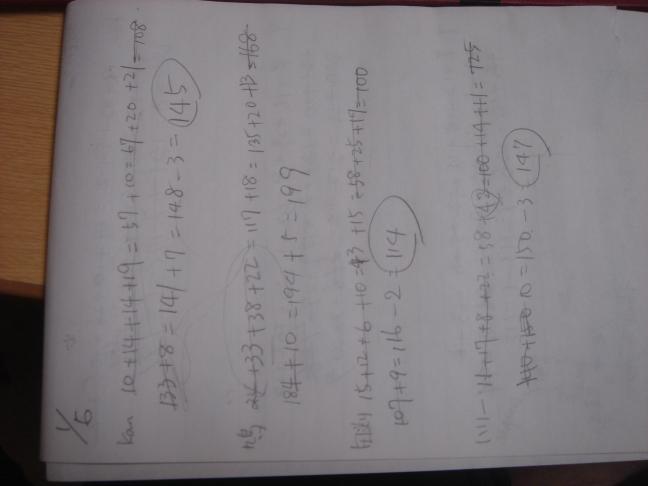 1/5
Kan 10+14+14+19=57+10=67+20+21=108
133+8=141+7=148-3=145
24+33+38+22=117+18=135+20+13=168
184+10=194+5=199
15+12+6+10=43+15=58+25+17=100
107+9=116-2=114
11+17+8+22=58+42=100+14+11=725
10=150-3=147